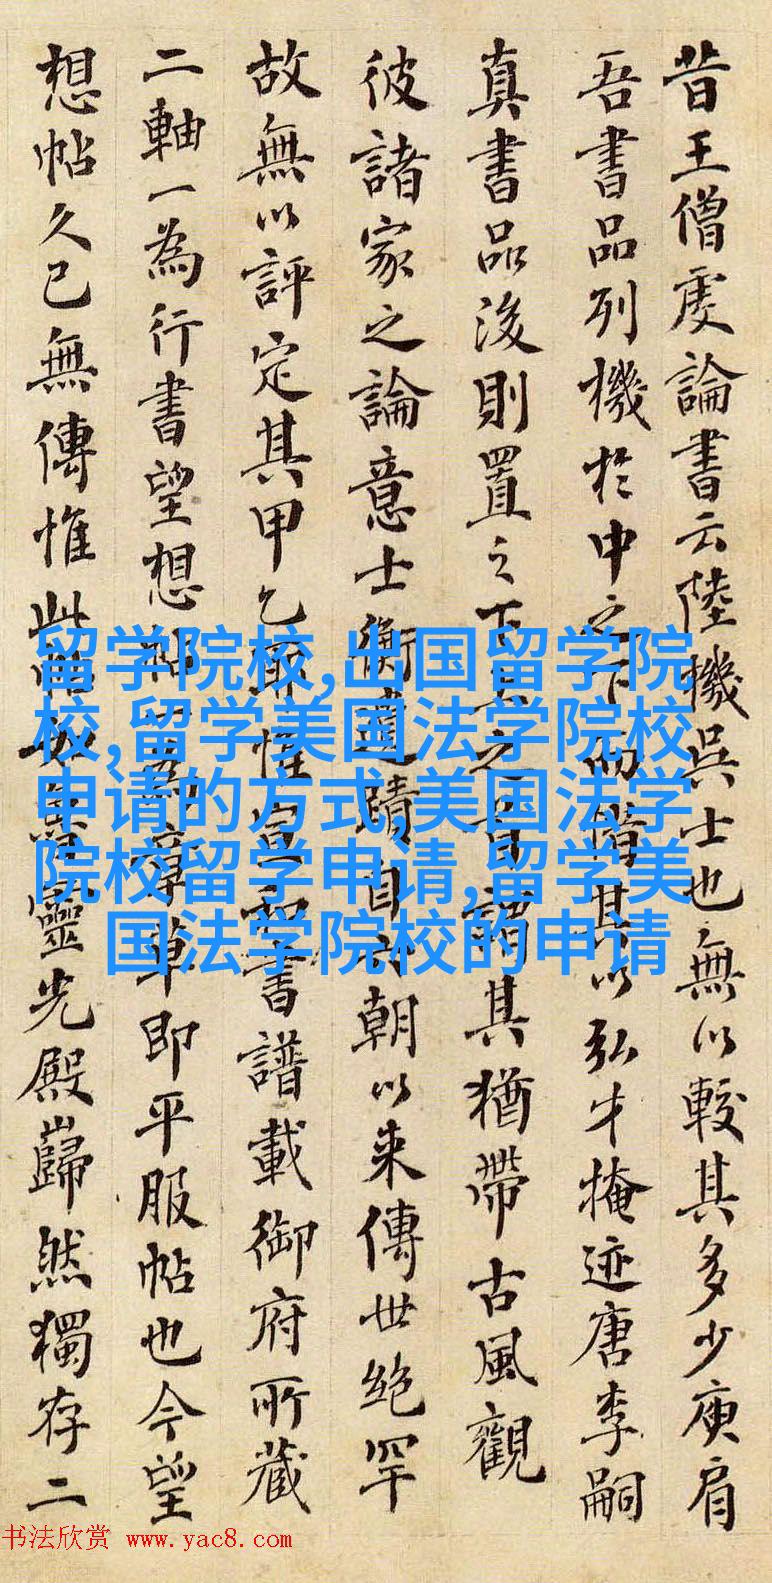 昔王僧虔論書云陸機吳士也無以較其多少庾肩
吾書品列機於中之下而惜其以弘才掩迹唐李嗣
真書品後則置之下上之首謂其猶帶古風觀
彼諸家之論意士衡遺蹟自六朝以来傳世絶罕
故無以評定其甲乙耶惟宣和書譜載御府所藏
二軸一為行書望想帖一為章草即平服帖也今望
想帖久已無傳惟此帖如魯靈光殿巋然獨存二
留学院校,出国留学院
校,留学美国法学院校
申请的方式,美国法学
院校留学申请,留学美
国法学院校的申请
书法欣赏 www.yac8.com